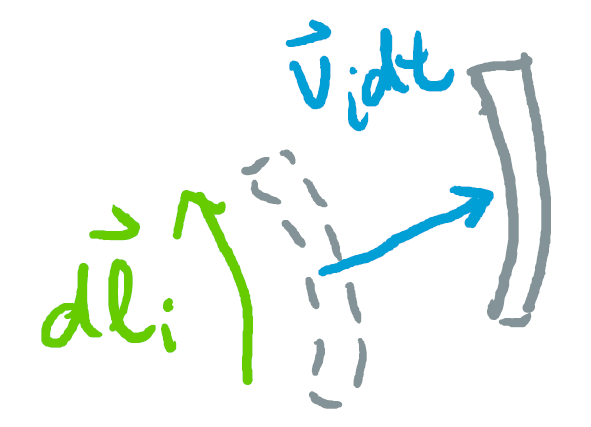 v⃗ᵢdt
dℓ⃗ᵢ